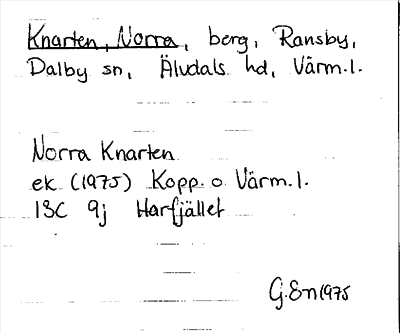 Knarten, Norra, berg, Ransby,
Dalby sn, Älvdals hd, Värm.l.
Norra Knarten
ek (1975) Kopp. o Värm.l.
13C 9j Harfjället
G.En 1975